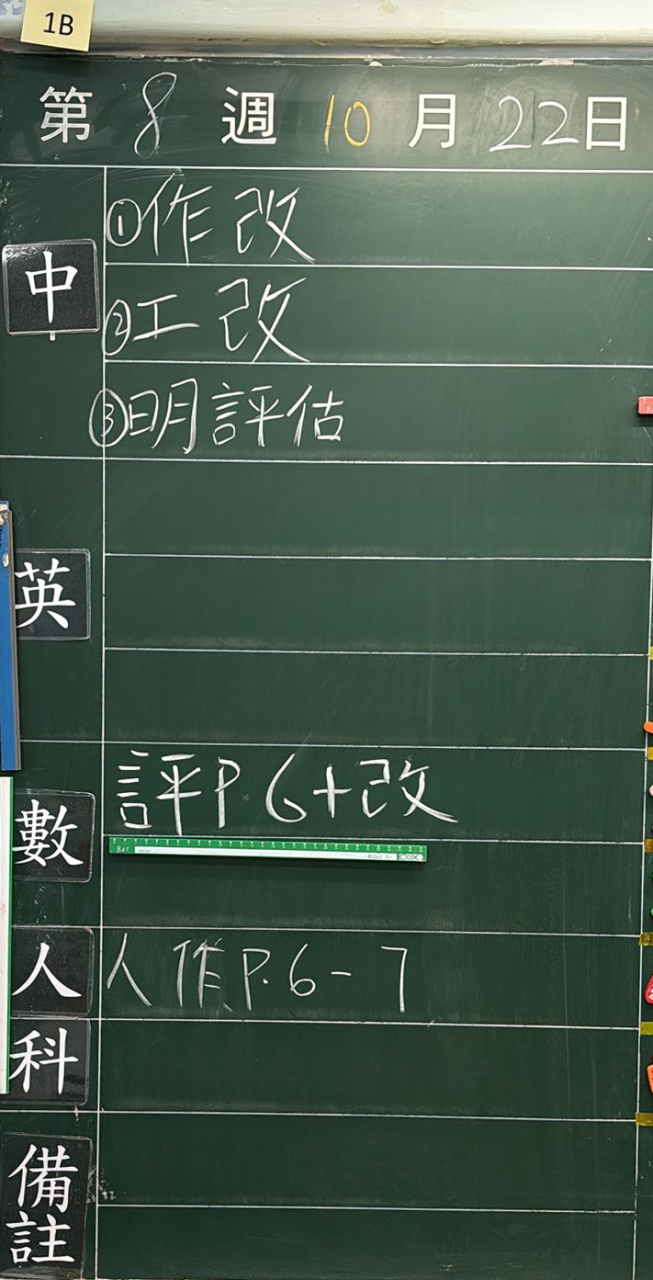 1B
第 8 週 10 月 22 日
中
①作改
②工改
③明評估
英
數
評P.6+改
人
人作P.6-7
科
備註